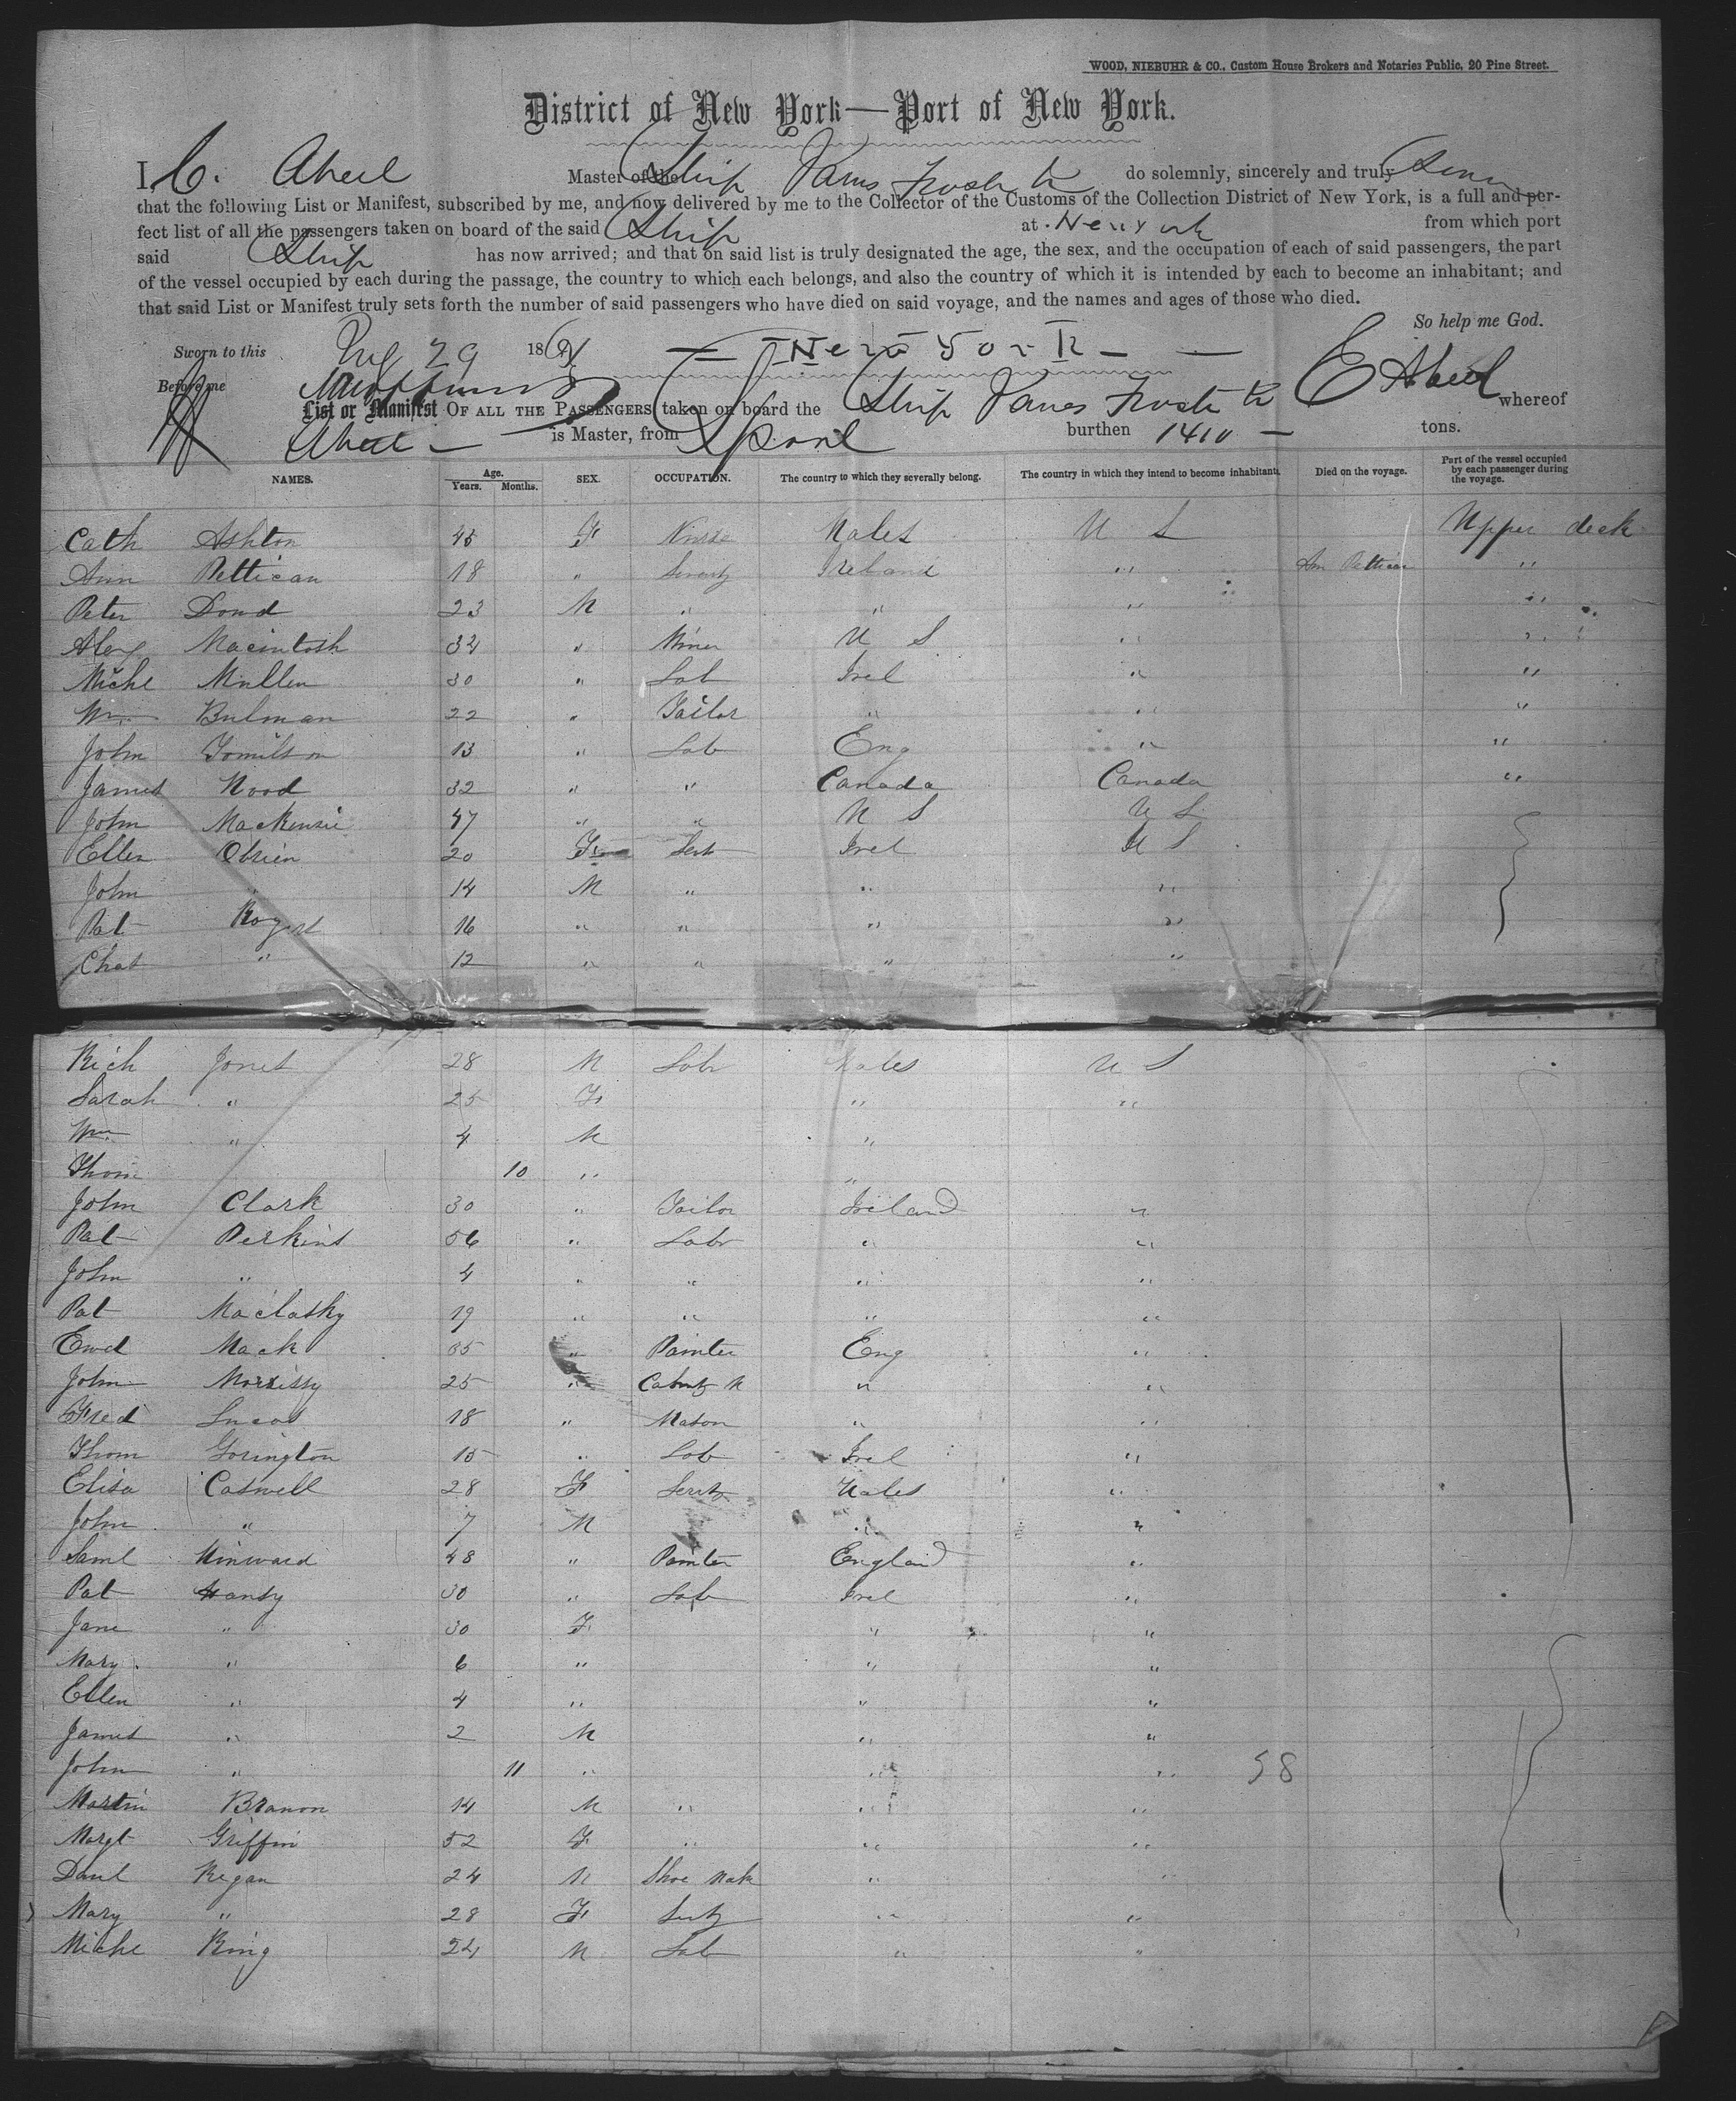 WOOD, NIEBUHR & CO., Custom House Brokers and Notaries Public, 20 Pine Street.
District of New York—Port of New York.
I, Master of the Ship do solemnly, sincerely and truly
that the following List or Manifest, subscribed by me, and now delivered by me to the Collector of the Customs of the Collection District of New York, is a full and per-
fect list of all the passengers taken on board of the said Ship at New York from which port
said Ship has now arrived; and that on said list is truly designated the age, the sex, and the occupation of each of said passengers, the part
of the vessel occupied by each during the passage, the country to which each belongs, and also the country of which it is intended by each to become an inhabitant; and
that said List or Manifest truly sets forth the number of said passengers who have died on said voyage, and the names and ages of those who died.
So help me God.
Sworn to this 29 186 — New York —
Before me
List or Manifest OF ALL THE PASSENGERS taken on board the Ship whereof
is Master, from burthen 1410 — tons.
NAMES. Age. Years. Months. SEX. OCCUPATION. The country to which they severally belong. The country in which they intend to become inhabitants. Died on the voyage. Part of the vessel occupied by each passenger during the voyage.
Cath Ashton 45 F Wales U S Upper deck
Ann Pettican 18 " Ireland " Ann Pettican "
Peter Doud 23 M " " " "
Alex Macintosh 32 " Miner U S " "
Michl Mullen 30 " Lab Irel " "
Wm Bulman 22 " Tailor " " "
John Tomilson 13 " Lab Eng " "
James Wood 32 " " Canada Canada "
John Mackensie 47 " " U S U S
Ellen Obrien 20 F Sert Irel U S
John " 14 M " " "
Pat 16 " " " "
Chas " 12 " " " "
Rich Jones 28 M Labr Wales U S
Sarah " 25 F " "
Wm " 4 M "
Thom 10 " "
John Clark 30 " Tailor Ireland "
Pat Perkins 56 " Labr " "
John " 4 " " " "
Pat Maclasky 19 " " " "
Ewd Mack 35 " Painter Eng "
John Morrissy 25 " Cabnt M " "
Fred Lucas 18 " Mason " "
Thom Gorington 15 " Lab Irel "
Elisa Caswell 28 F Wales "
John " 7 M " "
Saml Winward 48 " Painter England "
Pat Hansy 30 " Lab Irel "
Jane " 30 F " "
Mary " 6 " " "
Ellen " 4 " " "
James " 2 M " "
John " 11 " " " 58
Martin Branon 14 M " " "
Margt Griffin 52 F " " "
Danl Regan 24 M Shoe Mak " "
Mary " 28 F " "
Michl King 24 M Lab " "